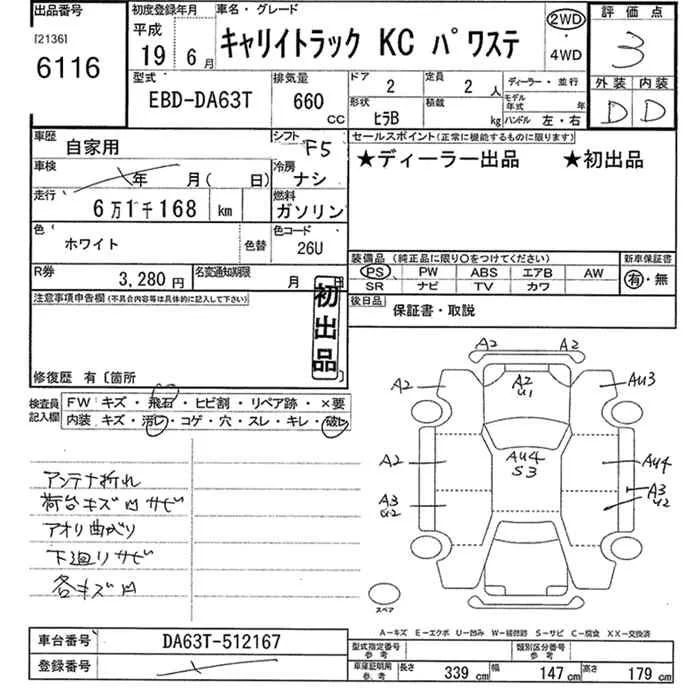 出品番号
[2136]
6116
初度登録年月
平成
19年 6月
車名・グレード
キャリイトラック KC パワステ
2WD
・
4WD
評価点
3
外装 内装
D D
型式
EBD-DA63T
排気量
660
CC
ドア
2
定員
2 人
形状
ヒラB
積載
kg
ディーラー・並行
モデル年式
年
ハンドル 左・右
車歴
自家用
シフト
F5
車検
年 月( 日)
冷房
ナシ
走行
6万1千168 km
燃料
ガソリン
色
ホワイト
色替
色コード
26U
R券
3,280円
名変通知期限
月 日
セールスポイント(正常に機能するものに限ります)
★ディーラー出品 ★初出品
装備品(純正品に限り○をつけてください)
新車保証書
PS PW ABS エアB AW
有・無
SR ナビ TV カワ
後日品
保証書・取説
注意事項申告欄(不具合内容等は具体的に記入して下さい)
初出品
修復歴 有〔箇所
検査員記入欄
FW キズ・飛石・ヒビ割・リペア跡・×要
内装 キズ・汚レ・コゲ・穴・スレ・キレ・破レ
アンテナ折れ
荷台キズ凹サビ
アオリ曲がり
下廻りサビ
各キズ凹
A2 A2
A2
A2
U1
AU3
A2
AU4
S3
AU4
A3
U2
A3
U2
スペア
A-キズ E-エクボ U-凹み W-補修跡 S-サビ C-腐食 XX-交換済
車台番号
DA63T-512167
登録番号
型式指定番号
参考
類別区分番号
参考
車庫証明用
参考
長さ
339 cm
幅
147 cm
高さ
179 cm